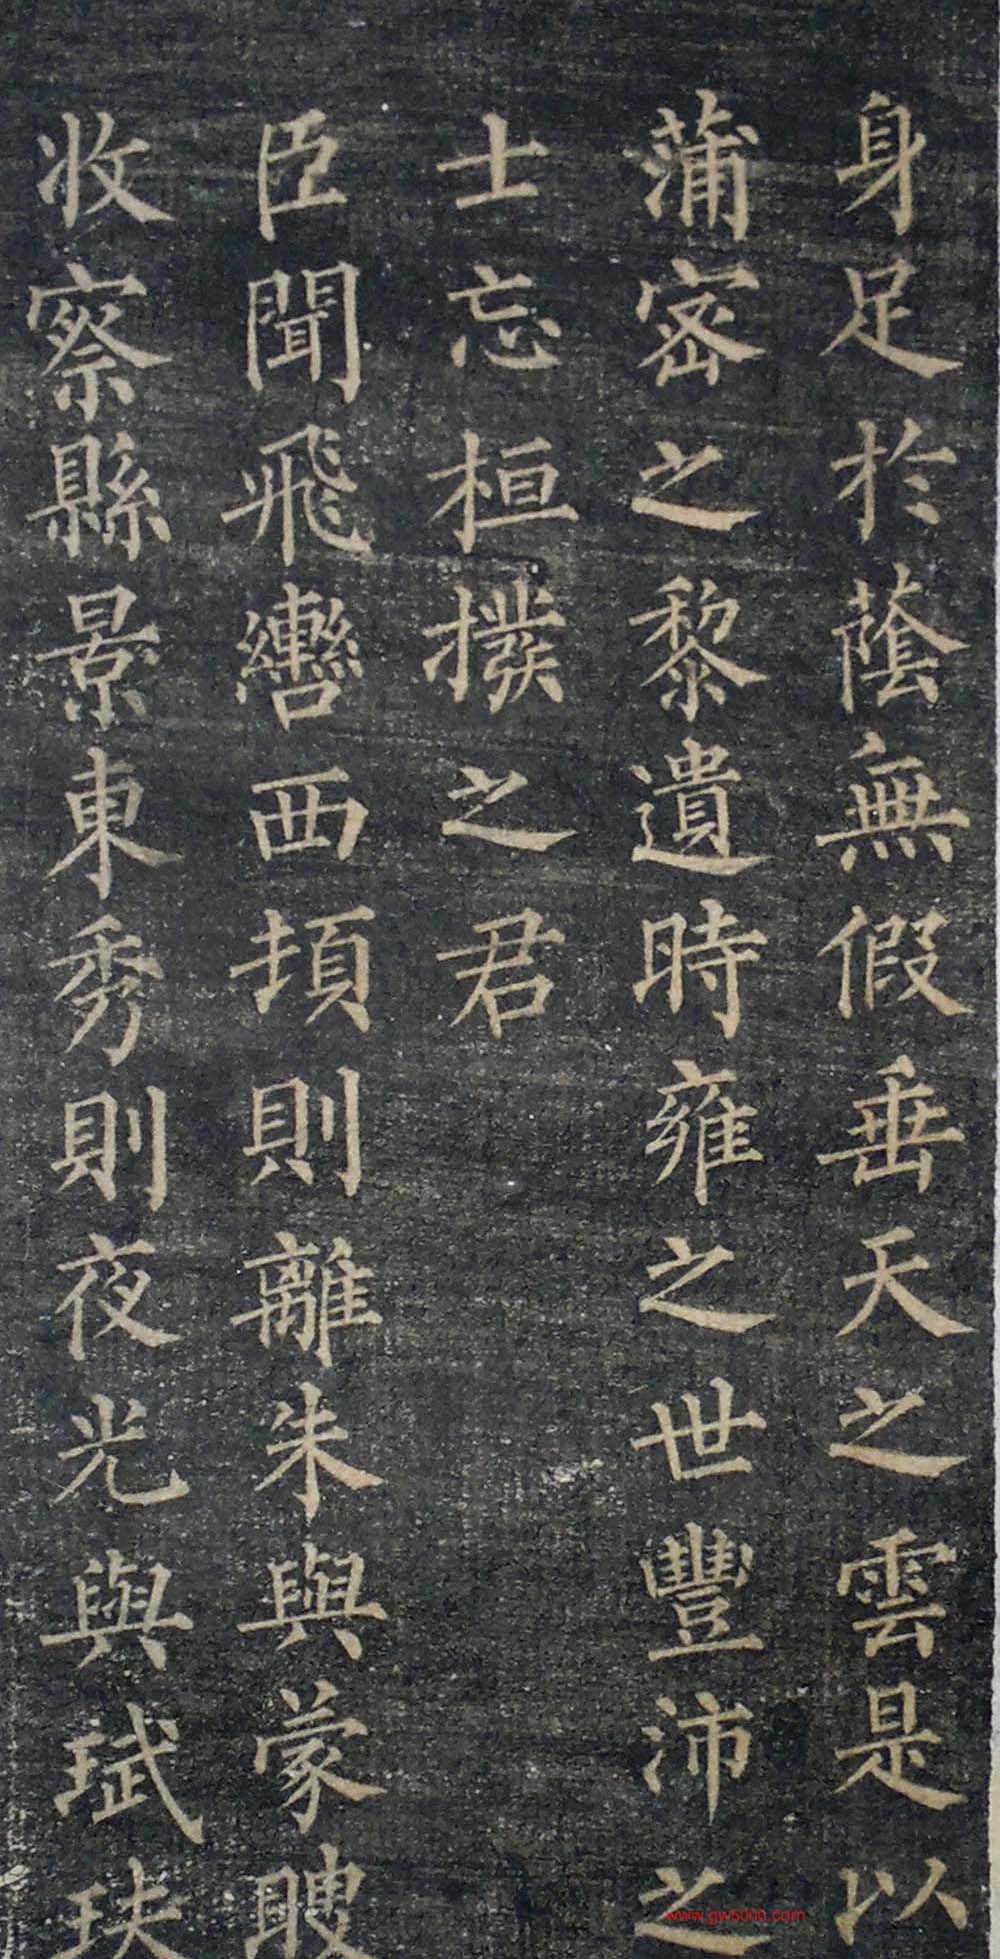 身足於蔭無假垂天之雲是以
蒲密之黎遺時雍之世豐沛之
士忘桓撥之君
臣聞飛轡西頓則離朱與蒙瞍
收察縣景東秀則夜光與珷玞
www.gw5000.com